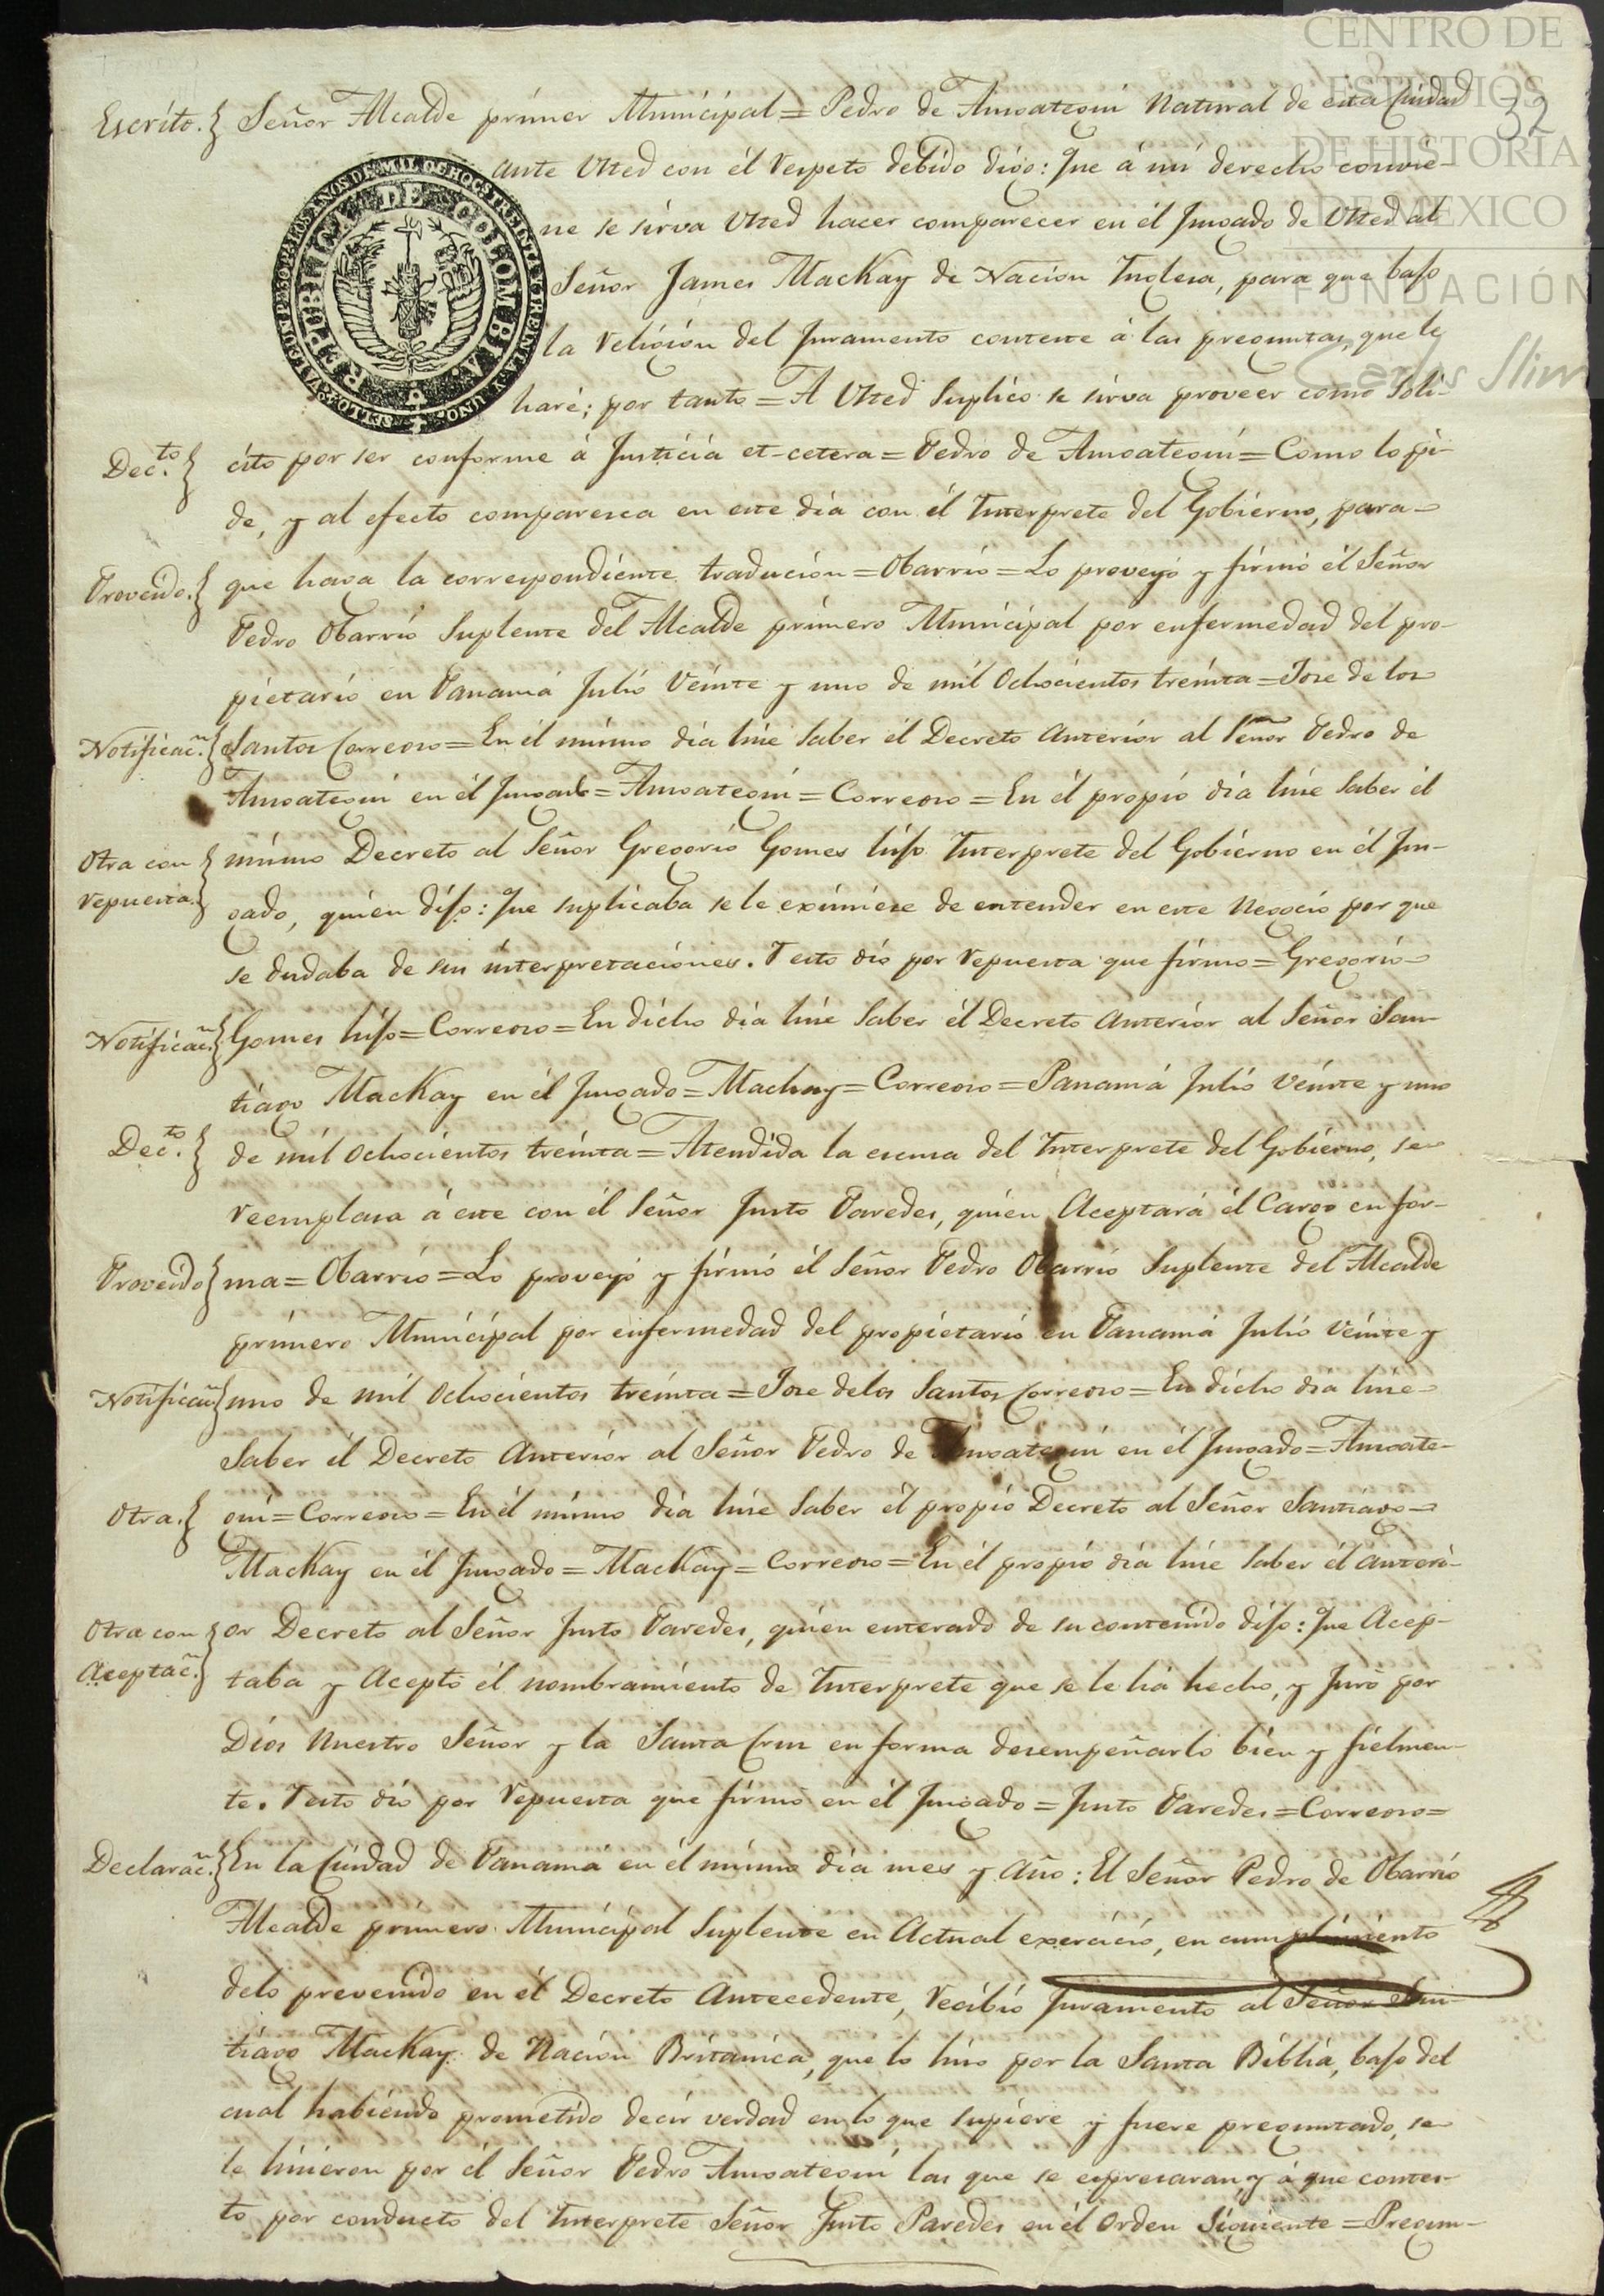 CENTRO DE
ESTUDIOS
DE HISTORIA
DE MÉXICO
FUNDACIÓN
Carlos Slim
32
Escrito. Señor Alcalde primer Municipal = Pedro de Amoategui Natural de esta Ciudad
ante Usted con él respeto debido digo: Que á mi derecho convie-
ne se sirva Usted hacer comparecer en él Jusgado de Usted al
Señor James MacKay de Nacion Inglesa, para que bajo
la religion del Juramento conteste á las preguntas, que le
haré; por tanto = A Usted Suplico se sirva proveer como soli-
SELLO
REPUBLICA DE COLOMBIA.
Dec.to cito por ser conforme á Justicia et-cetera = Pedro de Amoategui = Como lo pi-
de, y al efecto comparesca en este dia con él Interprete del Gobierno, para
Proveido. que haga la correspondiente traducion = Obarrio = Lo proveyó y firmó él Señor
Pedro Obarrio Suplente del Alcalde primero Municipal por enfermedad del pro-
pietario en Panamá Julio Veinte y uno de mil Ochocientos treinta = Jose de los
Notificac.n Santos Correoso = En él mismo dia hise saber él Decreto anterior al Señor Pedro de
Amoategui en él Jusgado = Amoategui = Correoso = En él propio dia hise saber él
Otra con mismo Decreto al Señor Gregorio Gomes hijo Interprete del Gobierno en él Jus-
repuesta. gado, quien dijo: Que suplicaba se le eximiese de entender en este Negocio por que
se dudaba de sus interpretaciones. Y esto dió por repuesta que firmo = Gregorio
Notificac.n Gomes hijo = Correoso = En dicho dia hise saber él Decreto anterior al Señor San-
tiago MacKay en él Jusgado = Mackay = Correoso = Panamá Julio veinte y uno
Dec.to de mil Ochocientos treinta = Atendida la escusa del Interprete del Gobierno, se
reemplasa á este con él Señor Justo Paredes, quien Aceptará él Cargo en for-
Proveido ma = Obarrio = Lo proveyó y firmó él Señor Pedro Obarrio Suplente del Alcalde
primero Municipal por enfermedad del propietario en Panamá Julio veinte y
Notificac.n uno de mil Ochocientos treinta = Jose delos Santos Correoso = En dicho dia hise
saber él Decreto Anterior al Señor Pedro de Amoategui en él Jusgado = Amoate-
Otra. gui = Correoso = En él mismo dia hise saber él propio Decreto al Señor Santiago
MacKay en él Jusgado = MacKay = Correoso = En él propio dia hise saber él anteri-
Otra con or Decreto al Señor Justo Paredes, quien enterado de su contenido dijo: Que Acep-
Aceptac.n taba y Aceptó él nombramiento de Interprete que se le há hecho, y Juró por
Dios Nuestro Señor y la Santa Crus en forma desempeñarlo bien y fielmen-
te. Y esto dió por repuesta que firmó en él Jusgado = Justo Paredes = Correoso =
Declarac.n En la Ciudad de Panamá en él mismo dia mes y año: El Señor Pedro de Obarrio
Alcalde primero Municipal Suplente en Actual exercicio, en cumplimiento
delo prevenido en él Decreto Antecedente, recibió Juramento al Señor San-
tiago MacKay de Nacion Britanica, que lo hiso por la Santa Biblia, bajo del
cual habiendo prometido decir verdad en lo que supiere y fuere preguntado, se
le hisieron por él Señor Pedro Amoategui las que se espresaran, y á que contes-
to por conducto del Interprete Señor Justo Paredes en él Orden siguiente = Pregun-